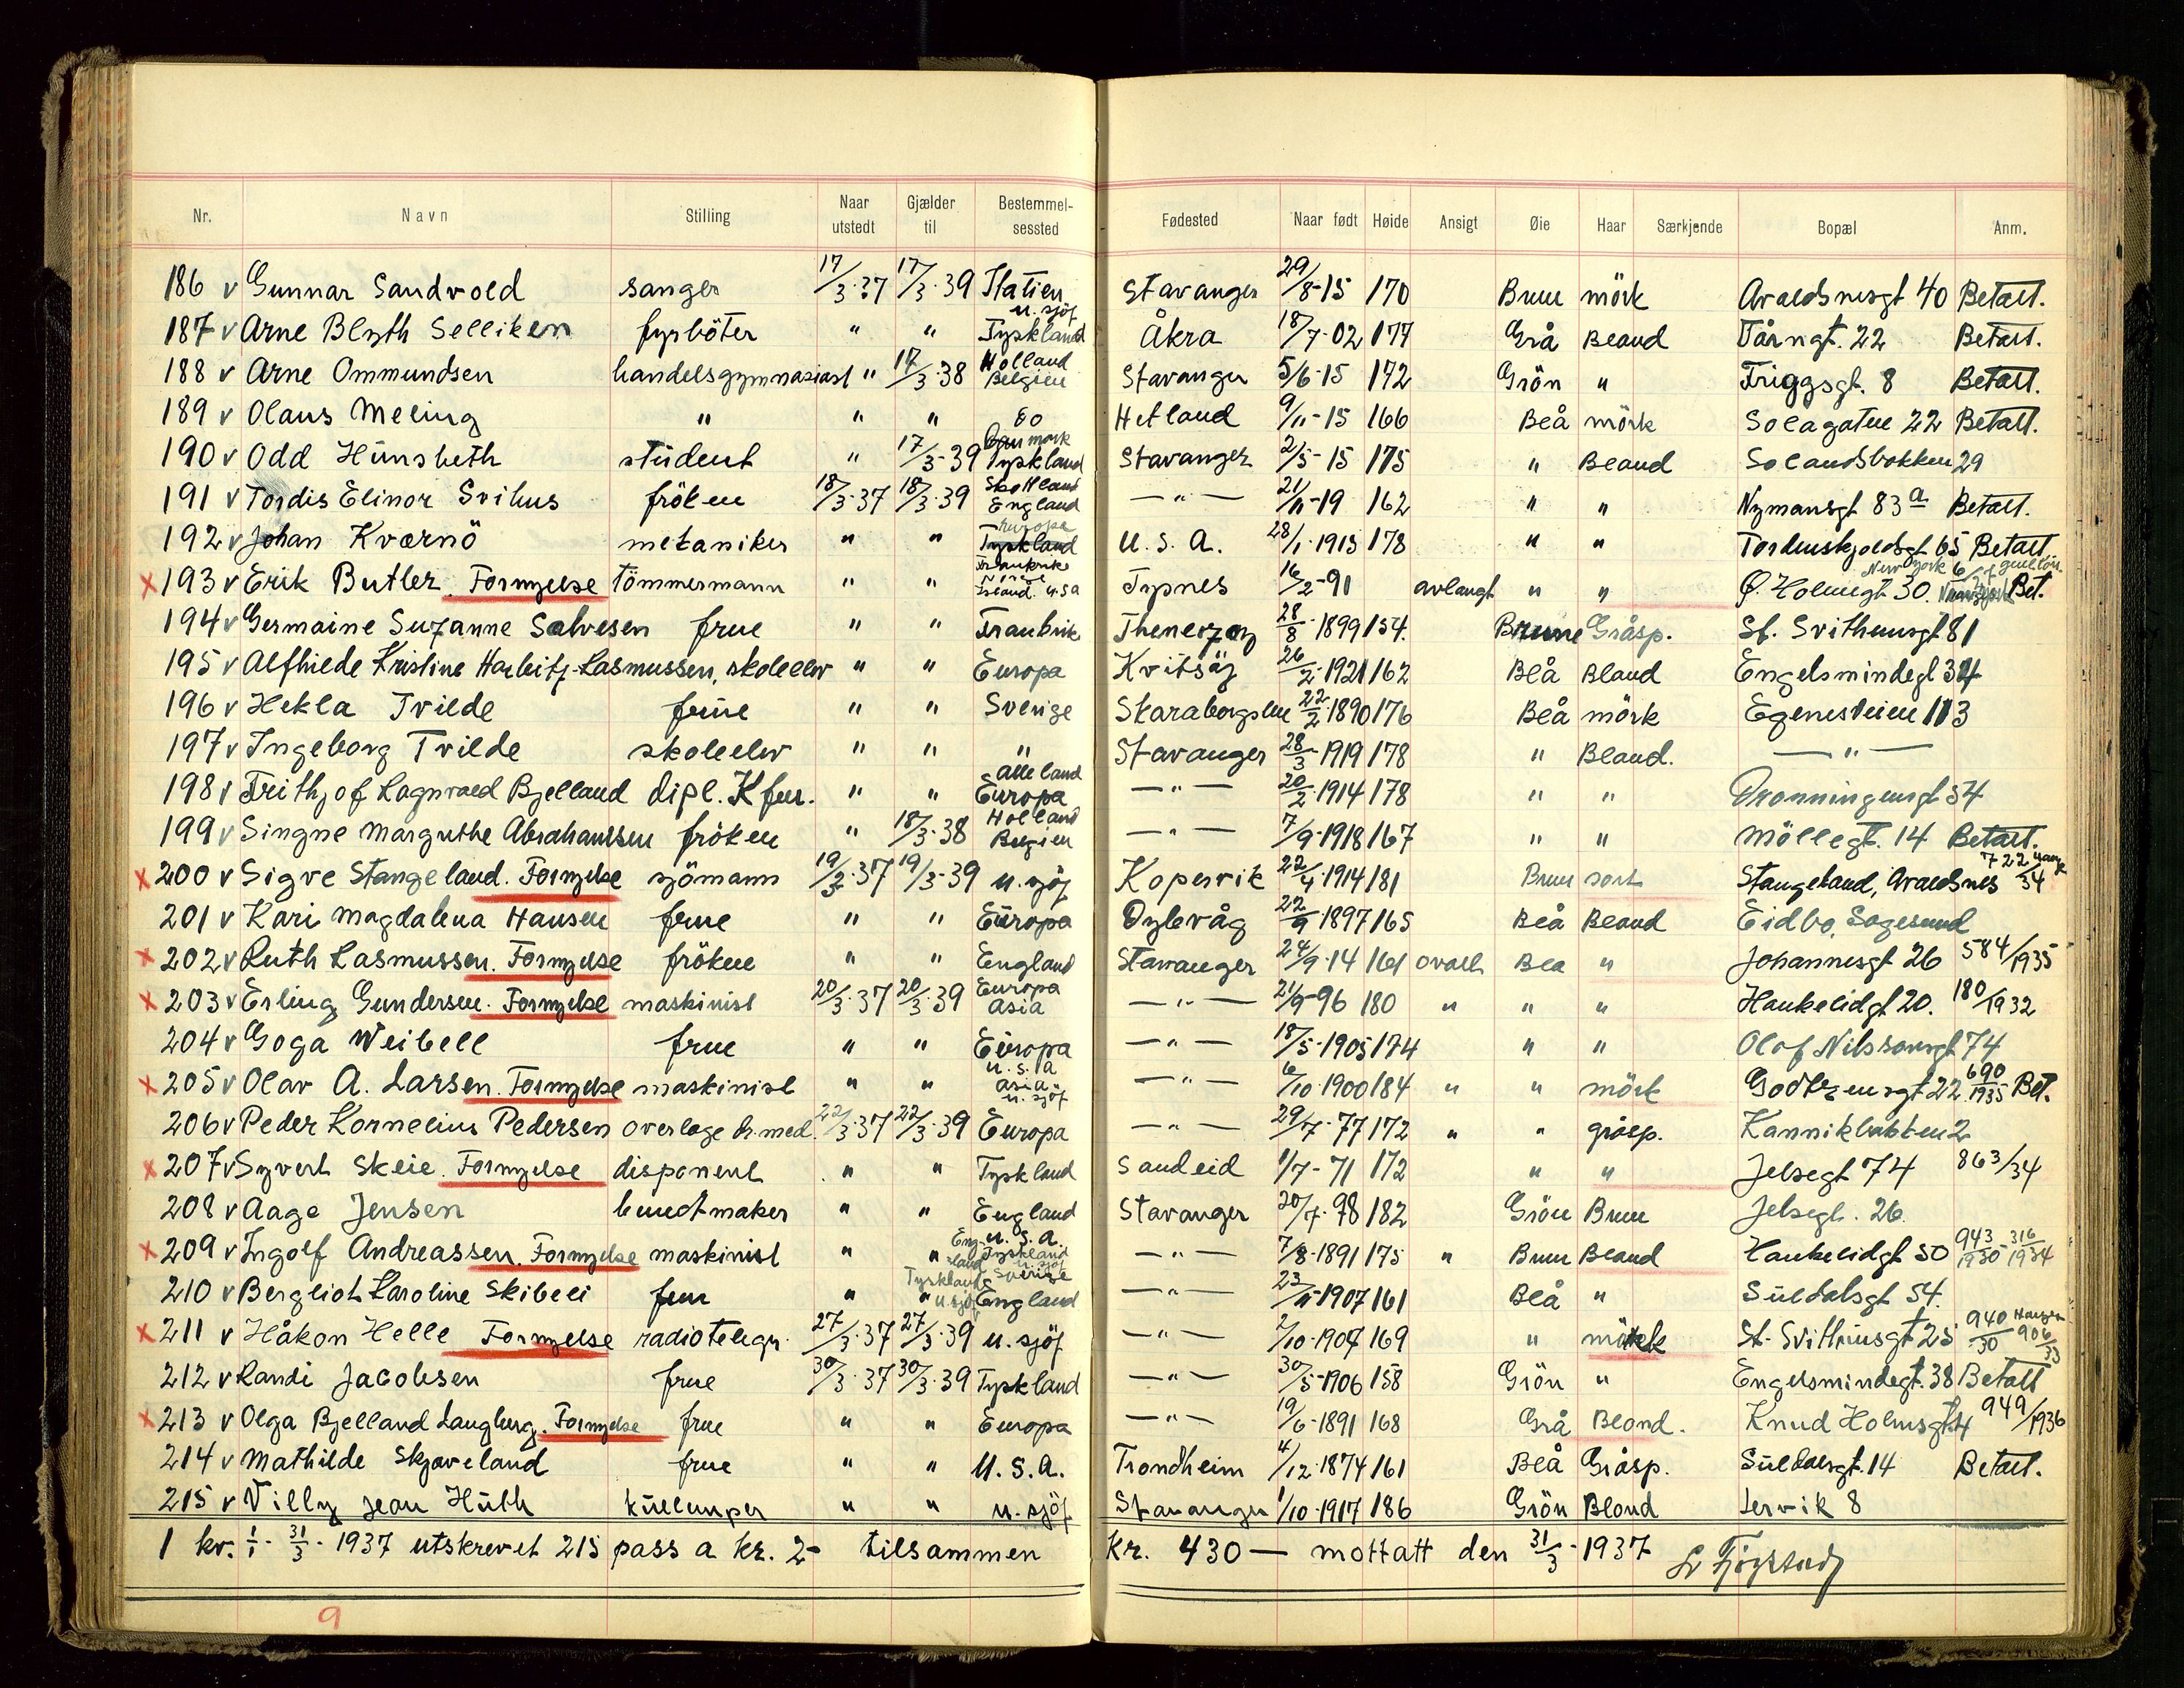 Nr. Navn Stilling Naar utstedt Gjælder til Bestemmel-sessted Fødested Naar født Høide Ansigt Øie Haar Særkjende Bopæl Anm.
186 v Gunnar Sandvold sanger 17/3-37 17/3-39 Italien Stavanger 29/8-15 170 Brun mörk Avaldsnesgt 40 Betalt.
187 v Arne Blyth Selliken fyrböter " " u. sjöf Tyskland Åkra 18/7-02 177 Grå Blond Tårngt. 22 Betalt.
188 v Arne Ommundsen handelsgymnasiast " 17/3-38 Holland Belgien Stavanger 5/6-15 172 Grön " Friggsgt. 8 Betalt.
189 v Olaus Meling " " " Do Hetland 9/11-15 166 Blå mörk Solagaten 22 Betalt.
190 v Odd Hünsbeth stüdent " 17/3-39 Danmark Tyskland Stavanger 2/5-15 175 " Blond Solandsbakken 29
191 v Tordis Elinor Svihus fröken 18/3-37 18/3-39 Skottland England —"— 21/11-19 162 " " Nymansgt 83a Betalt.
192 v Johan Kværnö mekaniker " " Europa Tyskland U.S.A. 28/1-1913 178 " " Tordenskjoldsgt 65 Betalt.
x 193 v Erik Butler. Fornyelse tömmermann " " Frankrike Irland. U.S.A Typnes 16/2-91 avlangt " " Ø. Holmegt 30. New York Bet.
194 v Germaine Suzanne Salvesen frue " " Frankrik Thenezay 28/8-1899 154. Brune Gråsp. St. Svithunsgt 81
195 v Alfhilde Kristine Harbitz-Rasmussen, skoleelev " " Europa Kvitsöy 26/2-1921 162 Blå Bland Engelsmindegt 34
196 v Hekla Tvilde früe " " Sverige Skaraborgslen 22/2-1890 176 Blå mörk Egenesveien 113
197 v Ingeborg Tvilde skoleelev " " " Stavanger 28/3-1919 178 " Bland. —"—
198 v Frithjof Ragnvald Bjelland dipl. Kfm. " " Alle land Europa —"— 20/2-1914 178 " " Dronningensgt 54
199 v Singne Margrethe Abrahamsen fröken " 18/3-38 Holland Belgien —"— 7/9-1918 167 " " Möllegt. 14 Betalt.
x 200 v Sigve Stangeland. Fornyelse sjömann 19/3-37 19/3-39 u. sjöf Kopervik 22/4-1914 181 Brun sort Stangeland, Avaldsnes 722/34
201 v Kari Magdalena Hansen frue " " Europa Dybvåg 22/9-1897 165 Blå Blond Eidbo, Sagesund
x 202 v Ruth Rasmussen. Fornyelse fröken " " England Stavanger 24/9-14 161 ovalt Blå " Johannesgt 26 584/1935
x 203 v Erling Gundersen. Fornyelse maskinist 20/3-37 20/3-39 Europa Asia —"— 21/9-96 180 " " " Haukelidgt 20. 180/1932
204 v Goga Weibell frue " " Europa —"— 18/5-1905 174 " " Olof Nilssonsgt 74
x 205 v Olav A. Larsen. Fornyelse maskinist " " U.S.A Asia u. sjöf —"— 6/10-1900 184 " " mörk Godtzensgt 22 690/1935 Bet.
206 v Peder Kornelius Pedersen overlege dr. med. 22/3-37 22/3-39 Europa —"— 29/7-77 172 " " gråsp. Kannikbakken 2
x 207 v Syvert Skeie. Fornyelse disponent " " Tyskland Sandeid 1/7-71 172 " " Jelsegt 74 863/34
208 v Aage Jensen bundtmaker " " England Stavanger 20/7-98 182 Grön Brun Jelsegt. 26.
x 209 v Ingolf Andreassen. Fornyelse maskinist " " U.S.A. England Tyskland u. sjöf —"— 7/8-1891 175 " Brun Blond Haukelidgt 50 943/1930 - 316/1934
210 v Bergliot Karoline Skibeli frue " " Tyskland Sverige u. sjöf England —"— 23/11-1907 161 Blå " Süldalsgt 54.
x 211 v Håkon Helle Fornyelse radiotelegr. 27/3-37 27/3-39 u. sjöf —"— 2/10-1907 169 " mörk St. Svithünsgt 25 940/30 906/33
212 v Randi Jacobsen frue 30/3-37 30/3-39 Tyskland —"— 30/5-1906 158 Grön " Engelsmindegt. 38 Betalt
x 213 v Olga Bjelland Langberg. Fornyelse frue " " Europa —"— 19/6-1891 168 Grå Blond. Knud Holmsgt 4 949/1936
214 v Mathilde Skjæveland frue " " U.S.A. Trondheim 4/12-1874 161 Blå Gråsp. Süldalsgt. 14 Betalt.
215 v Villy Jean Hüth küllemper " " u. sjöf Stavanger 1/10-1917 186 Grön Blond Lervik 8
1 kv. 1/1 - 31/3 - 1937 utskrevet 215 pass a kr. 2- tilsammen kr. 430 — mottatt den 31/3 - 1937
9